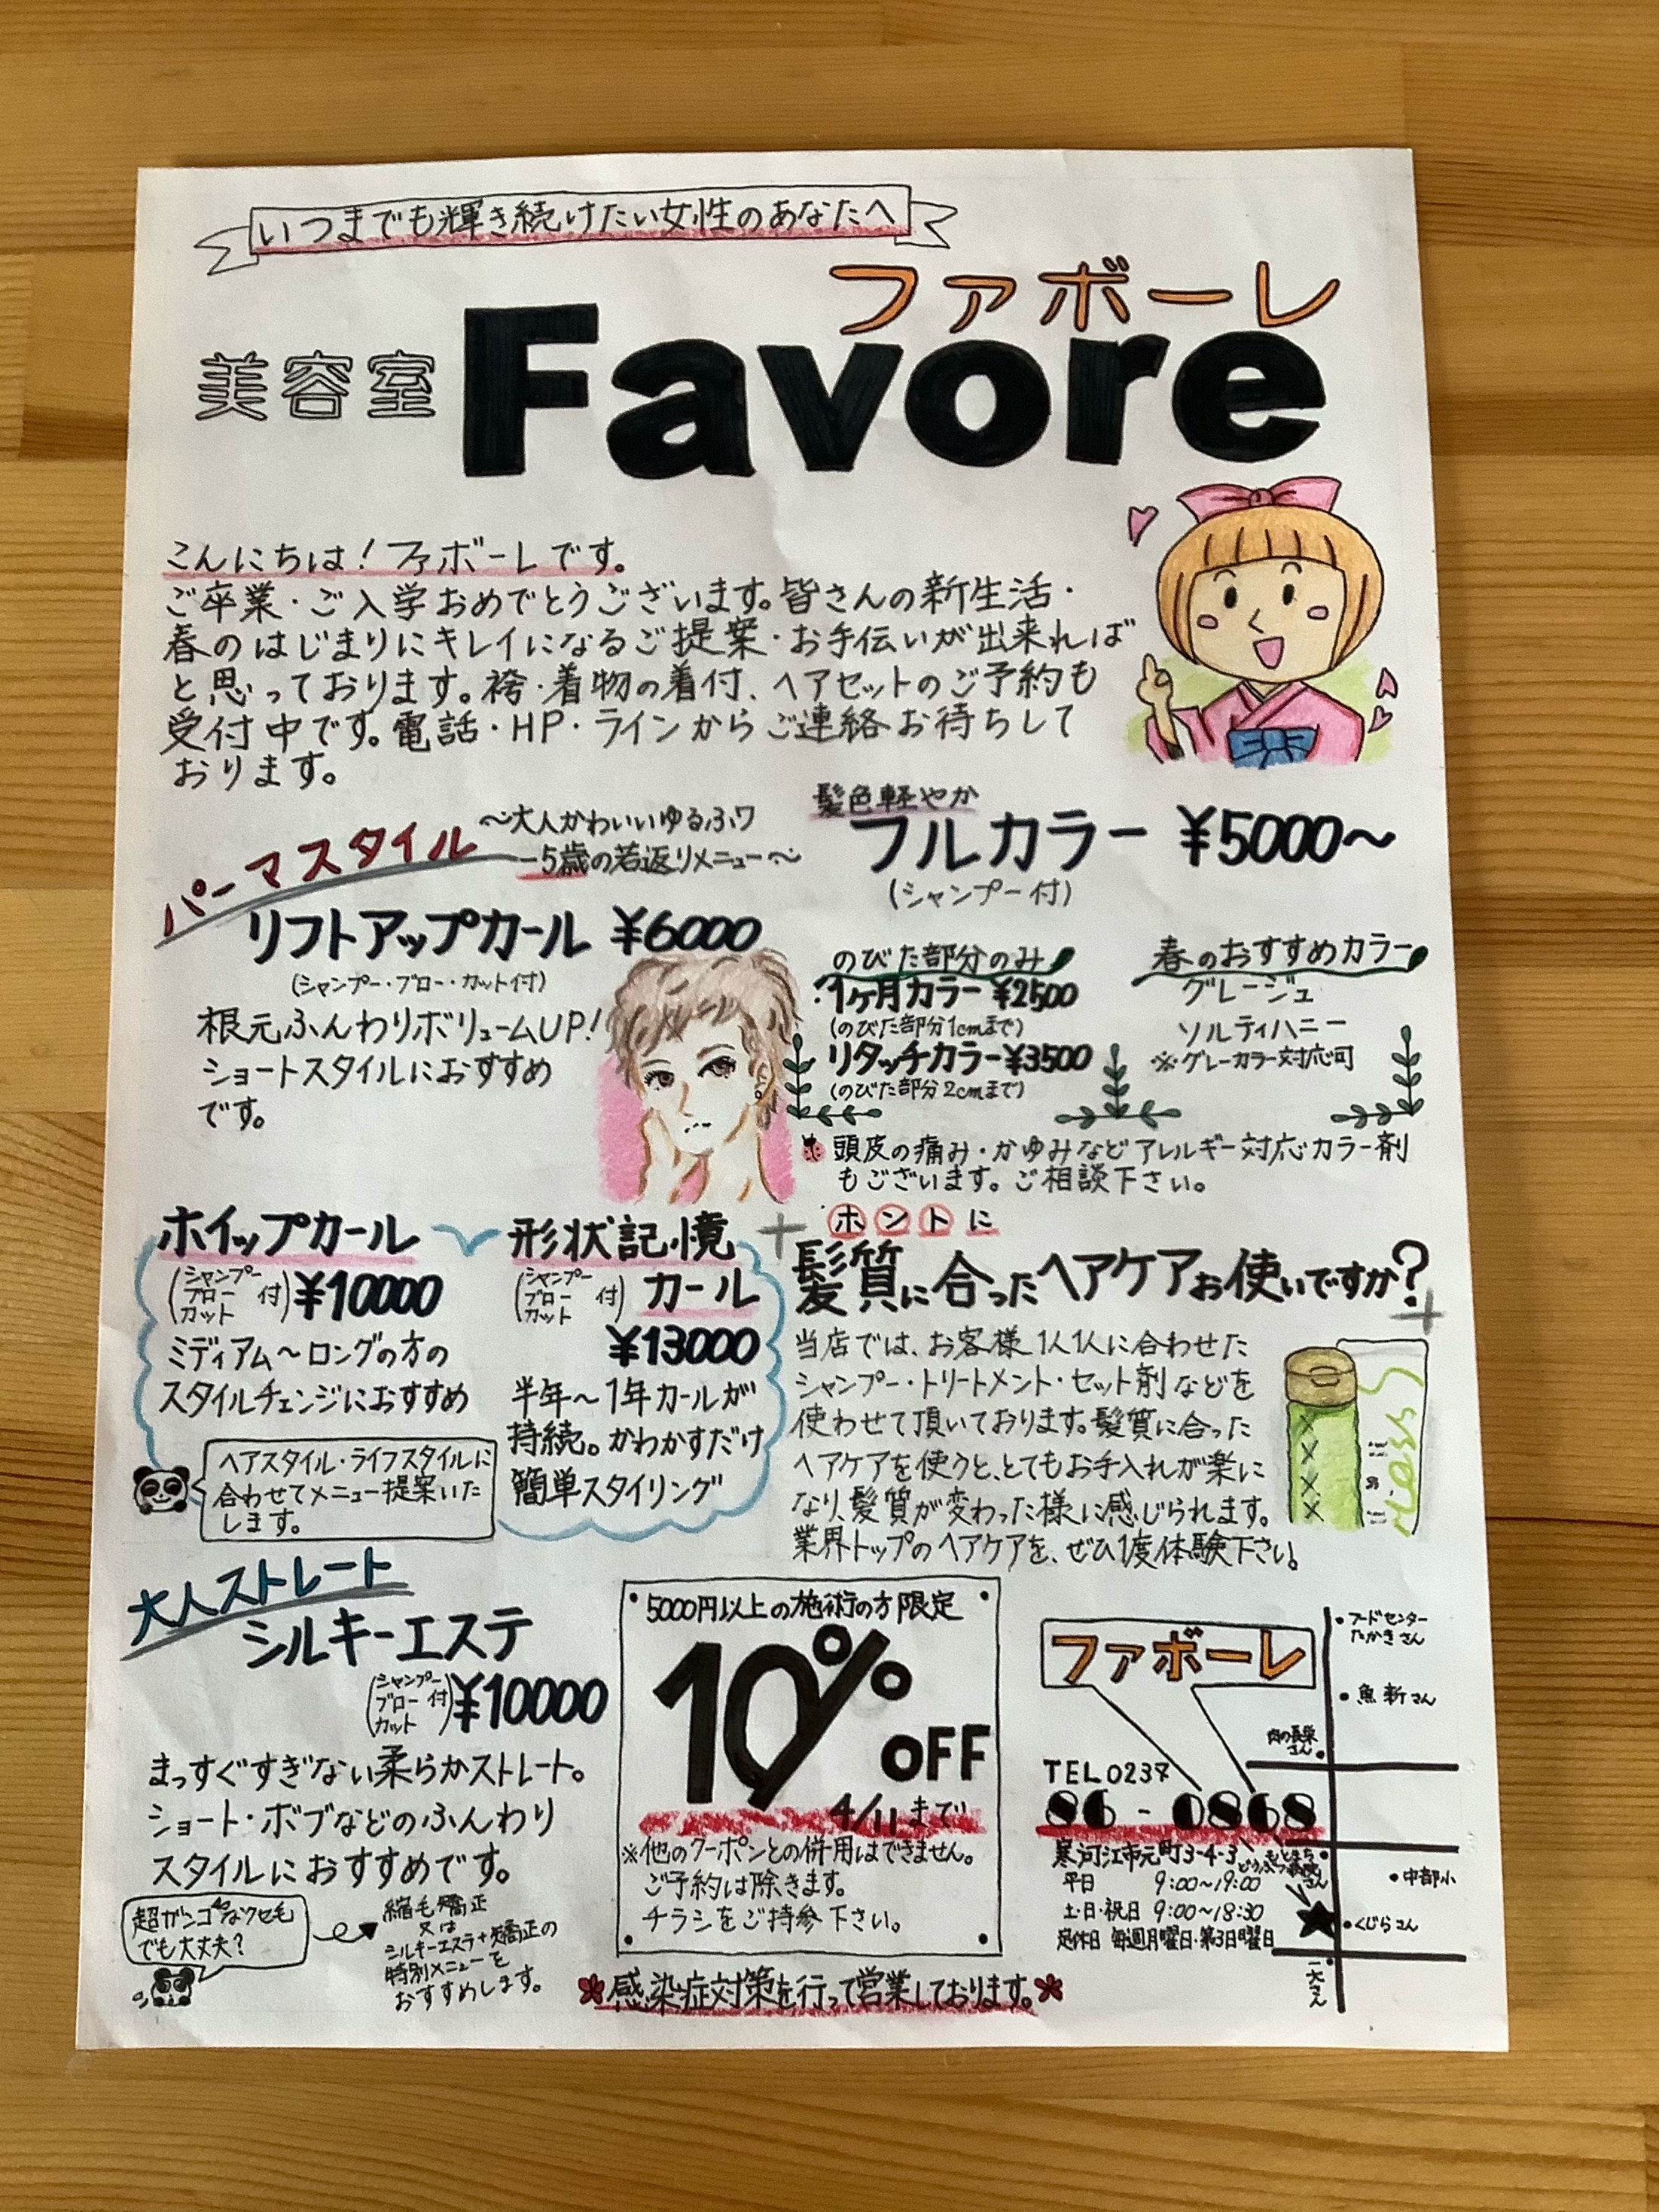 いつまでも輝き続けたい女性のあなたへ
ファボーレ
美容室 Favore
こんにちは！ファボーレです。
ご卒業・ご入学おめでとうございます。皆さんの新生活・
春のはじまりにキレイになるご提案・お手伝いが出来れば
と思っております。袴・着物の着付、ヘアセットのご予約も
受付中です。電話・HP・ラインからご連絡お待ちして
おります。
パーマスタイル
〜大人かわいいゆるふワ
−5歳の若返りメニュー〜
リフトアップカール ¥6000
(シャンプー・ブロー・カット付)
根元ふんわりボリュームUP!
ショートスタイルにおすすめ
です。
髪色軽やか
フルカラー ¥5000〜
(シャンプー付)
のびた部分のみ
・1ヶ月カラー ¥2500
(のびた部分1cmまで)
リタッチカラー¥3500
(のびた部分2cmまで)
春のおすすめカラー
グレージュ
ソルティハニー
※グレーカラー対応可
頭皮の痛み・かゆみなどアレルギー対応カラー剤
もございます。ご相談下さい。
ホイップカール
(シャンプー
ブロー 付)
カット
¥10000
ミディアム〜ロングの方の
スタイルチェンジにおすすめ
形状記憶
カール
(シャンプー
ブロー 付)
カット
¥13000
半年〜1年カールが
持続。かわかすだけ
簡単スタイリング
ヘアスタイル・ライフスタイルに
合わせてメニュー提案いた
します。
ホントに
髪質に合ったヘアケアお使いですか?
当店では、お客様1人1人に合わせた
シャンプー・トリートメント・セット剤などを
使わせて頂いております。髪質に合った
ヘアケアを使うと、とてもお手入れが楽に
なり、髪質が変わった様に感じられます。
業界トップのヘアケアを、ぜひ1度体験下さい。
大人ストレート
シルキーエステ
(シャンプー
ブロー 付)
カット
¥10000
まっすぐすぎない柔らかストレート。
ショート・ボブなどのふんわり
スタイルにおすすめです。
超ガンコなクセ毛
でも大丈夫?
縮毛矯正
又は
シルキーエステ+矯正の
特別メニューを
おすすめします。
5000円以上の施術の方限定
10%
OFF
4/11まで
※他のクーポンとの併用はできません。
ご予約は除きます。
チラシをご持参下さい。
感染症対策を行って営業しております。
ファボーレ
TEL0237
86-0868
寒河江市元町3-4-3
平日 9:00〜19:00
土・日・祝日 9:00〜18:30
定休日 毎週月曜日・第3日曜日
フードセンター
たかきさん
魚新さん
肉の長栄
さん
中部小
くじらさん